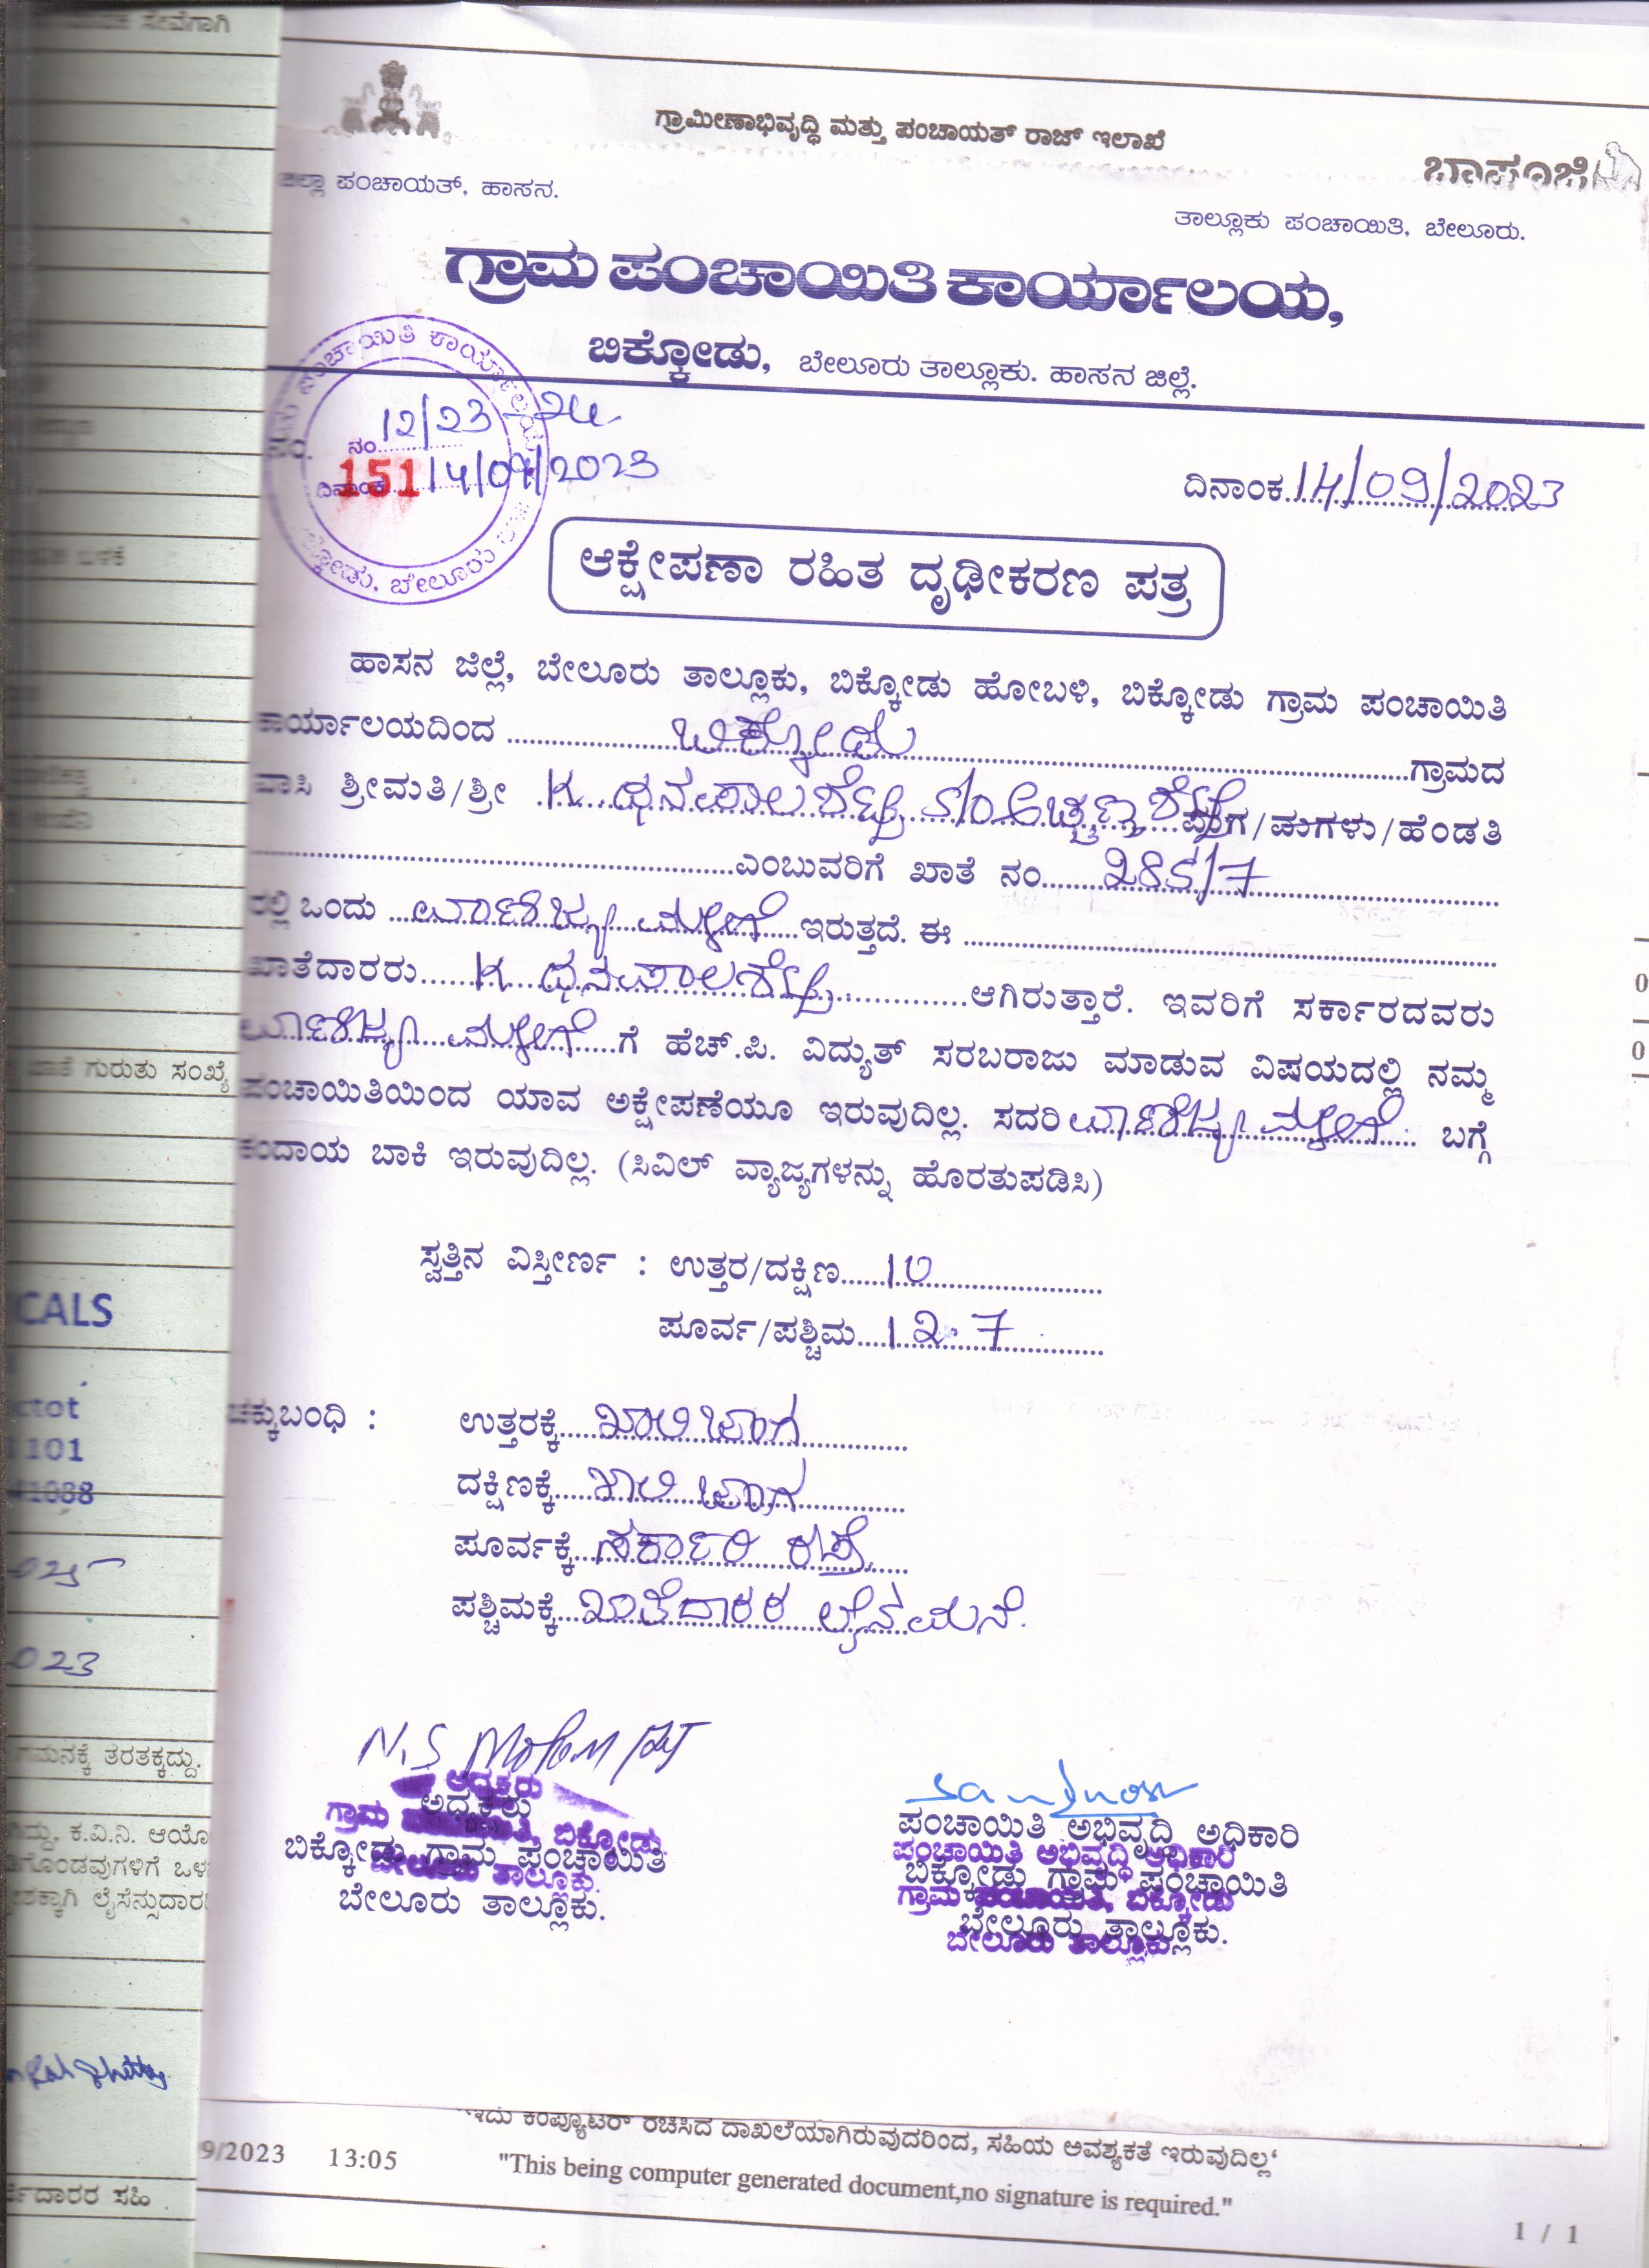 ಸೇವೆಗಾಗಿ
ಗ್ರಾಮೀಣಾಭಿವೃದ್ಧಿ ಮತ್ತು ಪಂಚಾಯತ್ ರಾಜ್ ಇಲಾಖೆ
ಜಿಲ್ಲಾ ಪಂಚಾಯತ್, ಹಾಸನ.
ತಾಲ್ಲೂಕು ಪಂಚಾಯಿತಿ, ಬೇಲೂರು.
ಗ್ರಾಮ ಪಂಚಾಯಿತಿ ಕಾರ್ಯಾಲಯ,
ಬಿಕ್ಕೋಡು, ಬೇಲೂರು ತಾಲ್ಲೂಕು. ಹಾಸನ ಜಿಲ್ಲೆ.
ಪಂಚಾಯಿತಿ ಕಾರ್ಯಾಲಯ
ನಂ. 12/23-24
151
ದಿನಾಂಕ 14/09/2023
ಬೇಲೂರು
ದಿನಾಂಕ 14/09/2023
ಆಕ್ಷೇಪಣಾ ರಹಿತ ದೃಢೀಕರಣ ಪತ್ರ
ಹಾಸನ ಜಿಲ್ಲೆ, ಬೇಲೂರು ತಾಲ್ಲೂಕು, ಬಿಕ್ಕೋಡು ಹೋಬಳಿ, ಬಿಕ್ಕೋಡು ಗ್ರಾಮ ಪಂಚಾಯಿತಿ
ಕಾರ್ಯಾಲಯದಿಂದ ಬಿಕ್ಕೋಡು ಗ್ರಾಮದ
ವಾಸಿ ಶ್ರೀಮತಿ/ಶ್ರೀ K ಧನಪಾಲಶೆಟ್ಟಿ S/O ಅಚ್ಚಣ್ಣಶೆಟ್ಟಿ ಮಗ/ಮಗಳು/ಹೆಂಡತಿ
ಎಂಬುವರಿಗೆ ಖಾತೆ ನಂ. 285/7
ರಲ್ಲಿ ಒಂದು ವಾಣಿಜ್ಯ ಮಳಿಗೆ ಇರುತ್ತದೆ. ಈ
ಖಾತೆದಾರರು K ಧನಪಾಲಶೆಟ್ಟಿ ಆಗಿರುತ್ತಾರೆ. ಇವರಿಗೆ ಸರ್ಕಾರದವರು
ವಾಣಿಜ್ಯ ಮಳಿಗೆ ಗೆ ಹೆಚ್.ಪಿ. ವಿದ್ಯುತ್ ಸರಬರಾಜು ಮಾಡುವ ವಿಷಯದಲ್ಲಿ ನಮ್ಮ
ಪಂಚಾಯಿತಿಯಿಂದ ಯಾವ ಅಕ್ಷೇಪಣೆಯೂ ಇರುವುದಿಲ್ಲ. ಸದರಿ ವಾಣಿಜ್ಯ ಮಳಿಗೆ ಬಗ್ಗೆ
ಕಂದಾಯ ಬಾಕಿ ಇರುವುದಿಲ್ಲ. (ಸಿವಿಲ್ ವ್ಯಾಜ್ಯಗಳನ್ನು ಹೊರತುಪಡಿಸಿ)
ಸ್ವತ್ತಿನ ವಿಸ್ತೀರ್ಣ : ಉತ್ತರ/ದಕ್ಷಿಣ 10
ಪೂರ್ವ/ಪಶ್ಚಿಮ 12.7
ಚಕ್ಕುಬಂಧಿ : ಉತ್ತರಕ್ಕೆ ಖಾಲಿ ಜಾಗ
ದಕ್ಷಿಣಕ್ಕೆ ಖಾಲಿ ಜಾಗ
ಪೂರ್ವಕ್ಕೆ ಸರ್ಕಾರಿ ರಸ್ತೆ
ಪಶ್ಚಿಮಕ್ಕೆ ಖಾತೆದಾರರ ಲೈನ್ ಮನೆ.
ಅಧ್ಯಕ್ಷರು
ಬಿಕ್ಕೋಡು ಗ್ರಾಮ ಪಂಚಾಯಿತಿ
ಬೇಲೂರು ತಾಲ್ಲೂಕು.
ಪಂಚಾಯಿತಿ ಅಭಿವೃದ್ಧಿ ಅಧಿಕಾರಿ
ಬಿಕ್ಕೋಡು ಗ್ರಾಮ ಪಂಚಾಯಿತಿ
ಬೇಲೂರು ತಾಲ್ಲೂಕು.
ಗುರುತು ಸಂಖ್ಯೆ
CALS
101
1088
ತರತಕ್ಕದ್ದು.
ಕ.ವಿ.ನಿ.
ಸಹಿ
ಇದು ಕಂಪ್ಯೂಟರ್ ರಚಿಸಿದ ದಾಖಲೆಯಾಗಿರುವುದರಿಂದ, ಸಹಿಯ ಅವಶ್ಯಕತೆ ಇರುವುದಿಲ್ಲ
9/2023 13:05
"This being computer generated document,no signature is required."
1 / 1